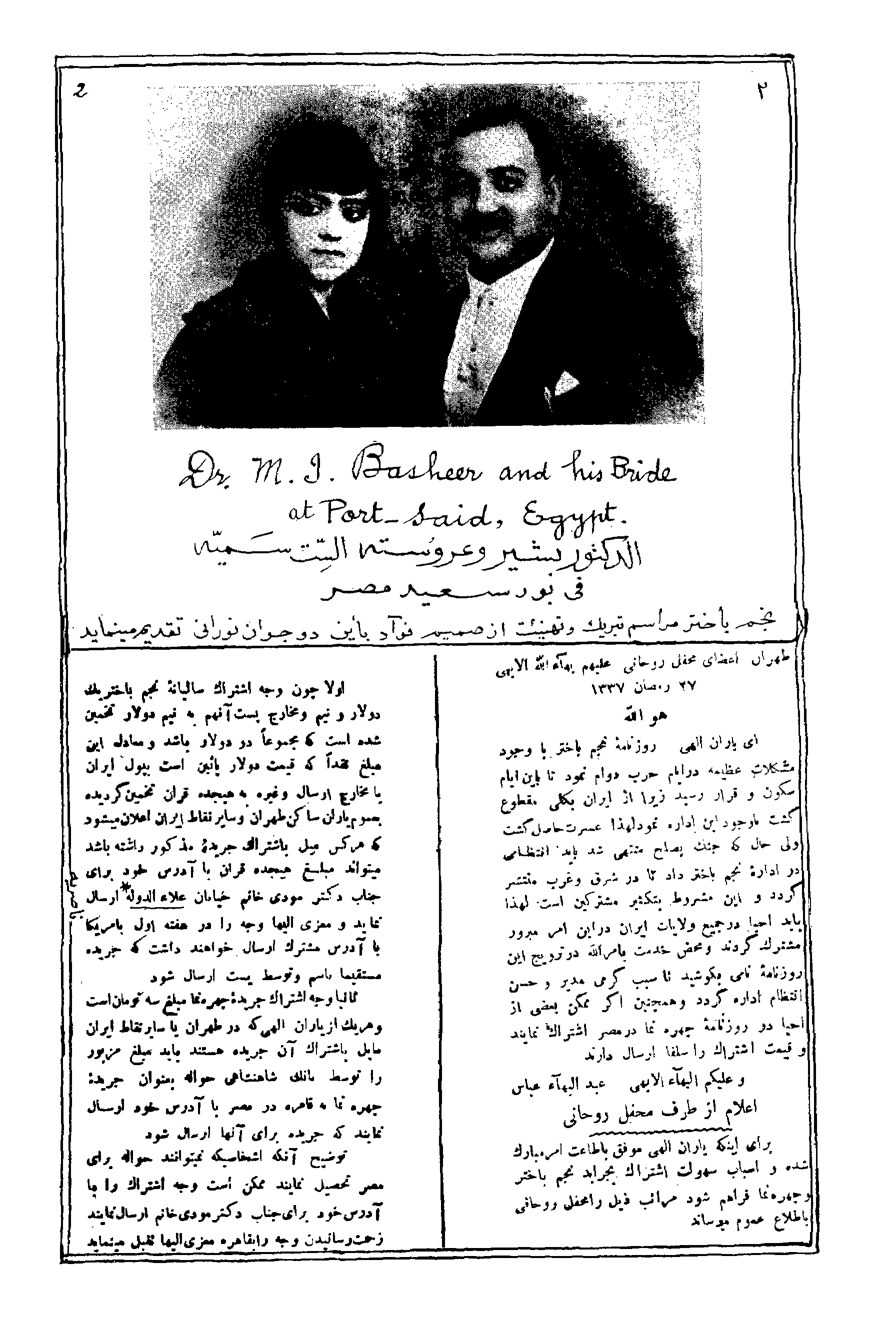 2
٢
Dr. M. I. Basheer and his Bride
at Port-Said, Egypt.
الدكتور بشير وعروسته السّت سميّه
فى بورسعيد مصر
نجم باختر مراسم تبريك وتهنيئت از صميم فوآد باين دو جوان نورانى تقديم مينمايد
طهران اعضاى محفل روحانى عليهم بهآء الله الابهى
٢٧ رمضان ١٣٣٧
هو الله
اى ياران الهى روزنامهٔ نجم باختر با وجود
مشكلات عظيمه در ايام حرب دوام نمود تا باين ايام
سكون و قرار رسيد زيرا از ايران بكلى مقطوع
گشت باوجود اين اداره نمود لهذا عسرت حاصل گشت
ولى حال كه جنك بصلح منتهى شد بايد انتظامى
در ادارهٔ نجم باختر داد تا در شرق وغرب منتشر
گردد و اين مشروط بتكثير مشتركين است لهذا
بايد احبا در جميع ولايات ايران دراين امر مبرور
مشترك گردند ومحض خدمت بامرالله درترويج اين
روزنامهٔ نامى بكوشيد تا سبب گرمى مدير و حسن
انتظام اداره گردد وهمچنين اكر ممكن بعضى از
احبا در روزنامهٔ چهره نما درمصر اشتراك نمايند
و قيمت اشتراك را سلفا ارسال دارند
و عليكم البهآء الابهى عبد البهآء عباس
اعلام از طرف محفل روحانى
براى اينكه ياران الهى موفق باطاعت امر مبارك
شده و اسباب سهولت اشتراك بجرايد نجم باختر
وچهره نما فراهم شود مراتب ذيل را محفل روحانى
باطلاع عموم ميرساند
اولا چون وجه اشتراك ساليانهٔ نجم باختر يك
دولار و نيم ومخارج پست آنهم به نيم دولار تخمين
شده است كه مجموعاً دو دولار باشد و معادل اين
مبلغ نقداً كه قيمت دولار پائين است بپول ايران
با مخارج ارسال وغيره به هيجده قران تخمين گرديده
بعموم ياران ساكن طهران وساير نقاط ايران اعلان ميشود
كه هركس ميل باشتراك جريدهٔ مذكور راشته باشد
ميتواند مبلغ هيجده قران با آدرس خود براى
جناب دكتر مودى خانم خيابان علاء الدوله* ارسال
*ناصريه
نمايد و معزى اليها وجه را در هفته اول بامريكا
با آدرس مشترك ارسال خواهند داشت كه جريده
مستقيما باسم وتوسط پست ارسال شود
ثانيا وجه اشتراك جريدهٔ چهره نما مبلغ سه تومان است
وهريك از ياران الهى كه در طهران يا ساير نقاط ايران
مايل باشتراك آن جريده هستند بايد مبلغ مزبور
را توسط بانك شاهنشاهى حواله بعنوان جريدهٔ
چهره نما به قاهره در مصر با آدرس خود ارسال
نمايند كه جريده براى آنها ارسال شود
توضيح آنكه اشخاصيكه نميتوانند حواله براى
مصر تحصيل نمايند ممكن است وجه اشتراك را با
آدرس خود براى جناب دكتر مودى خانم ارسال نمايند
زحمت رسانيدن وجه را بقاهره معزى اليها تقبل مينمايد